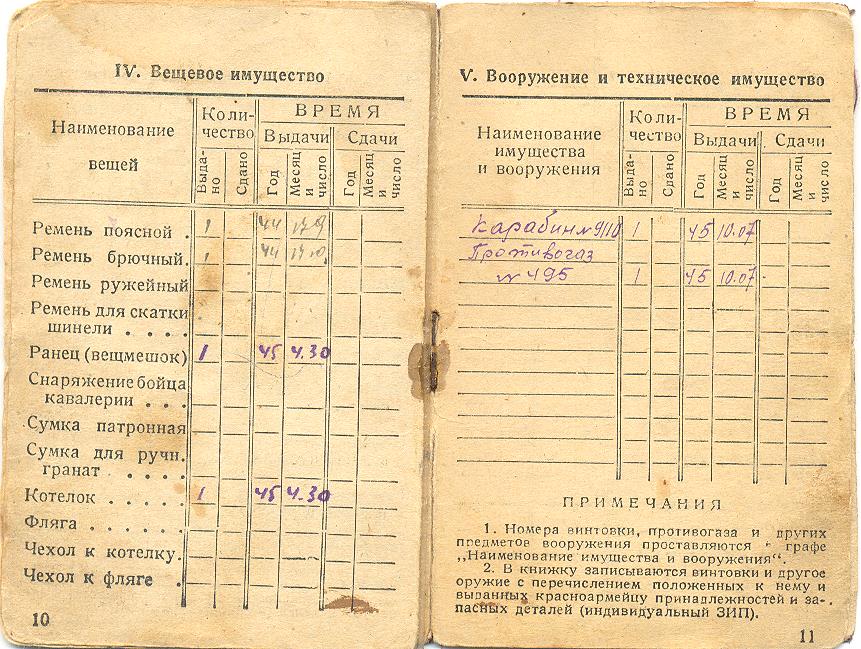 IV. Вещевое имущество
Наименование вещей
Коли-
чество
ВРЕМЯ
Выдачи
Сдачи
Выда-
но
Сдано
Год
Месяц и число
Год
Месяц и число
Ремень поясной . 1 44
Ремень брючный. 1 44
Ремень ружейный
Ремень для скатки
шинели . . . .
Ранец (вещмешок) 1 45 4.30
Снаряжение бойца
кавалерии . . .
Сумка патронная
Сумка для ручн.
гранат . . . .
Котелок . . . . . 1 45 4.30
Фляга . . . . . .
Чехол к котелку.
Чехол к фляге .
10
V. Вооружение и техническое имущество
Наименование
имущества
и вооружения
Коли-
чество
ВРЕМЯ
Выдачи
Сдачи
Выда-
но
Сдано
Год
Месяц и число
Год
Месяц и число
Карабин № 1 45 10.07
Противогаз
№ 495 1 45 10.07
ПРИМЕЧАНИЯ
1. Номера винтовки, противогаза и других
предметов вооружения проставляются в графе
„Наименование имущества и вооружения“.
2. В книжку записываются винтовки и другое
оружие с перечислением положенных к нему и
выданных красноармейцу принадлежностей и за-
пасных деталей (индивидуальный ЗИП).
11